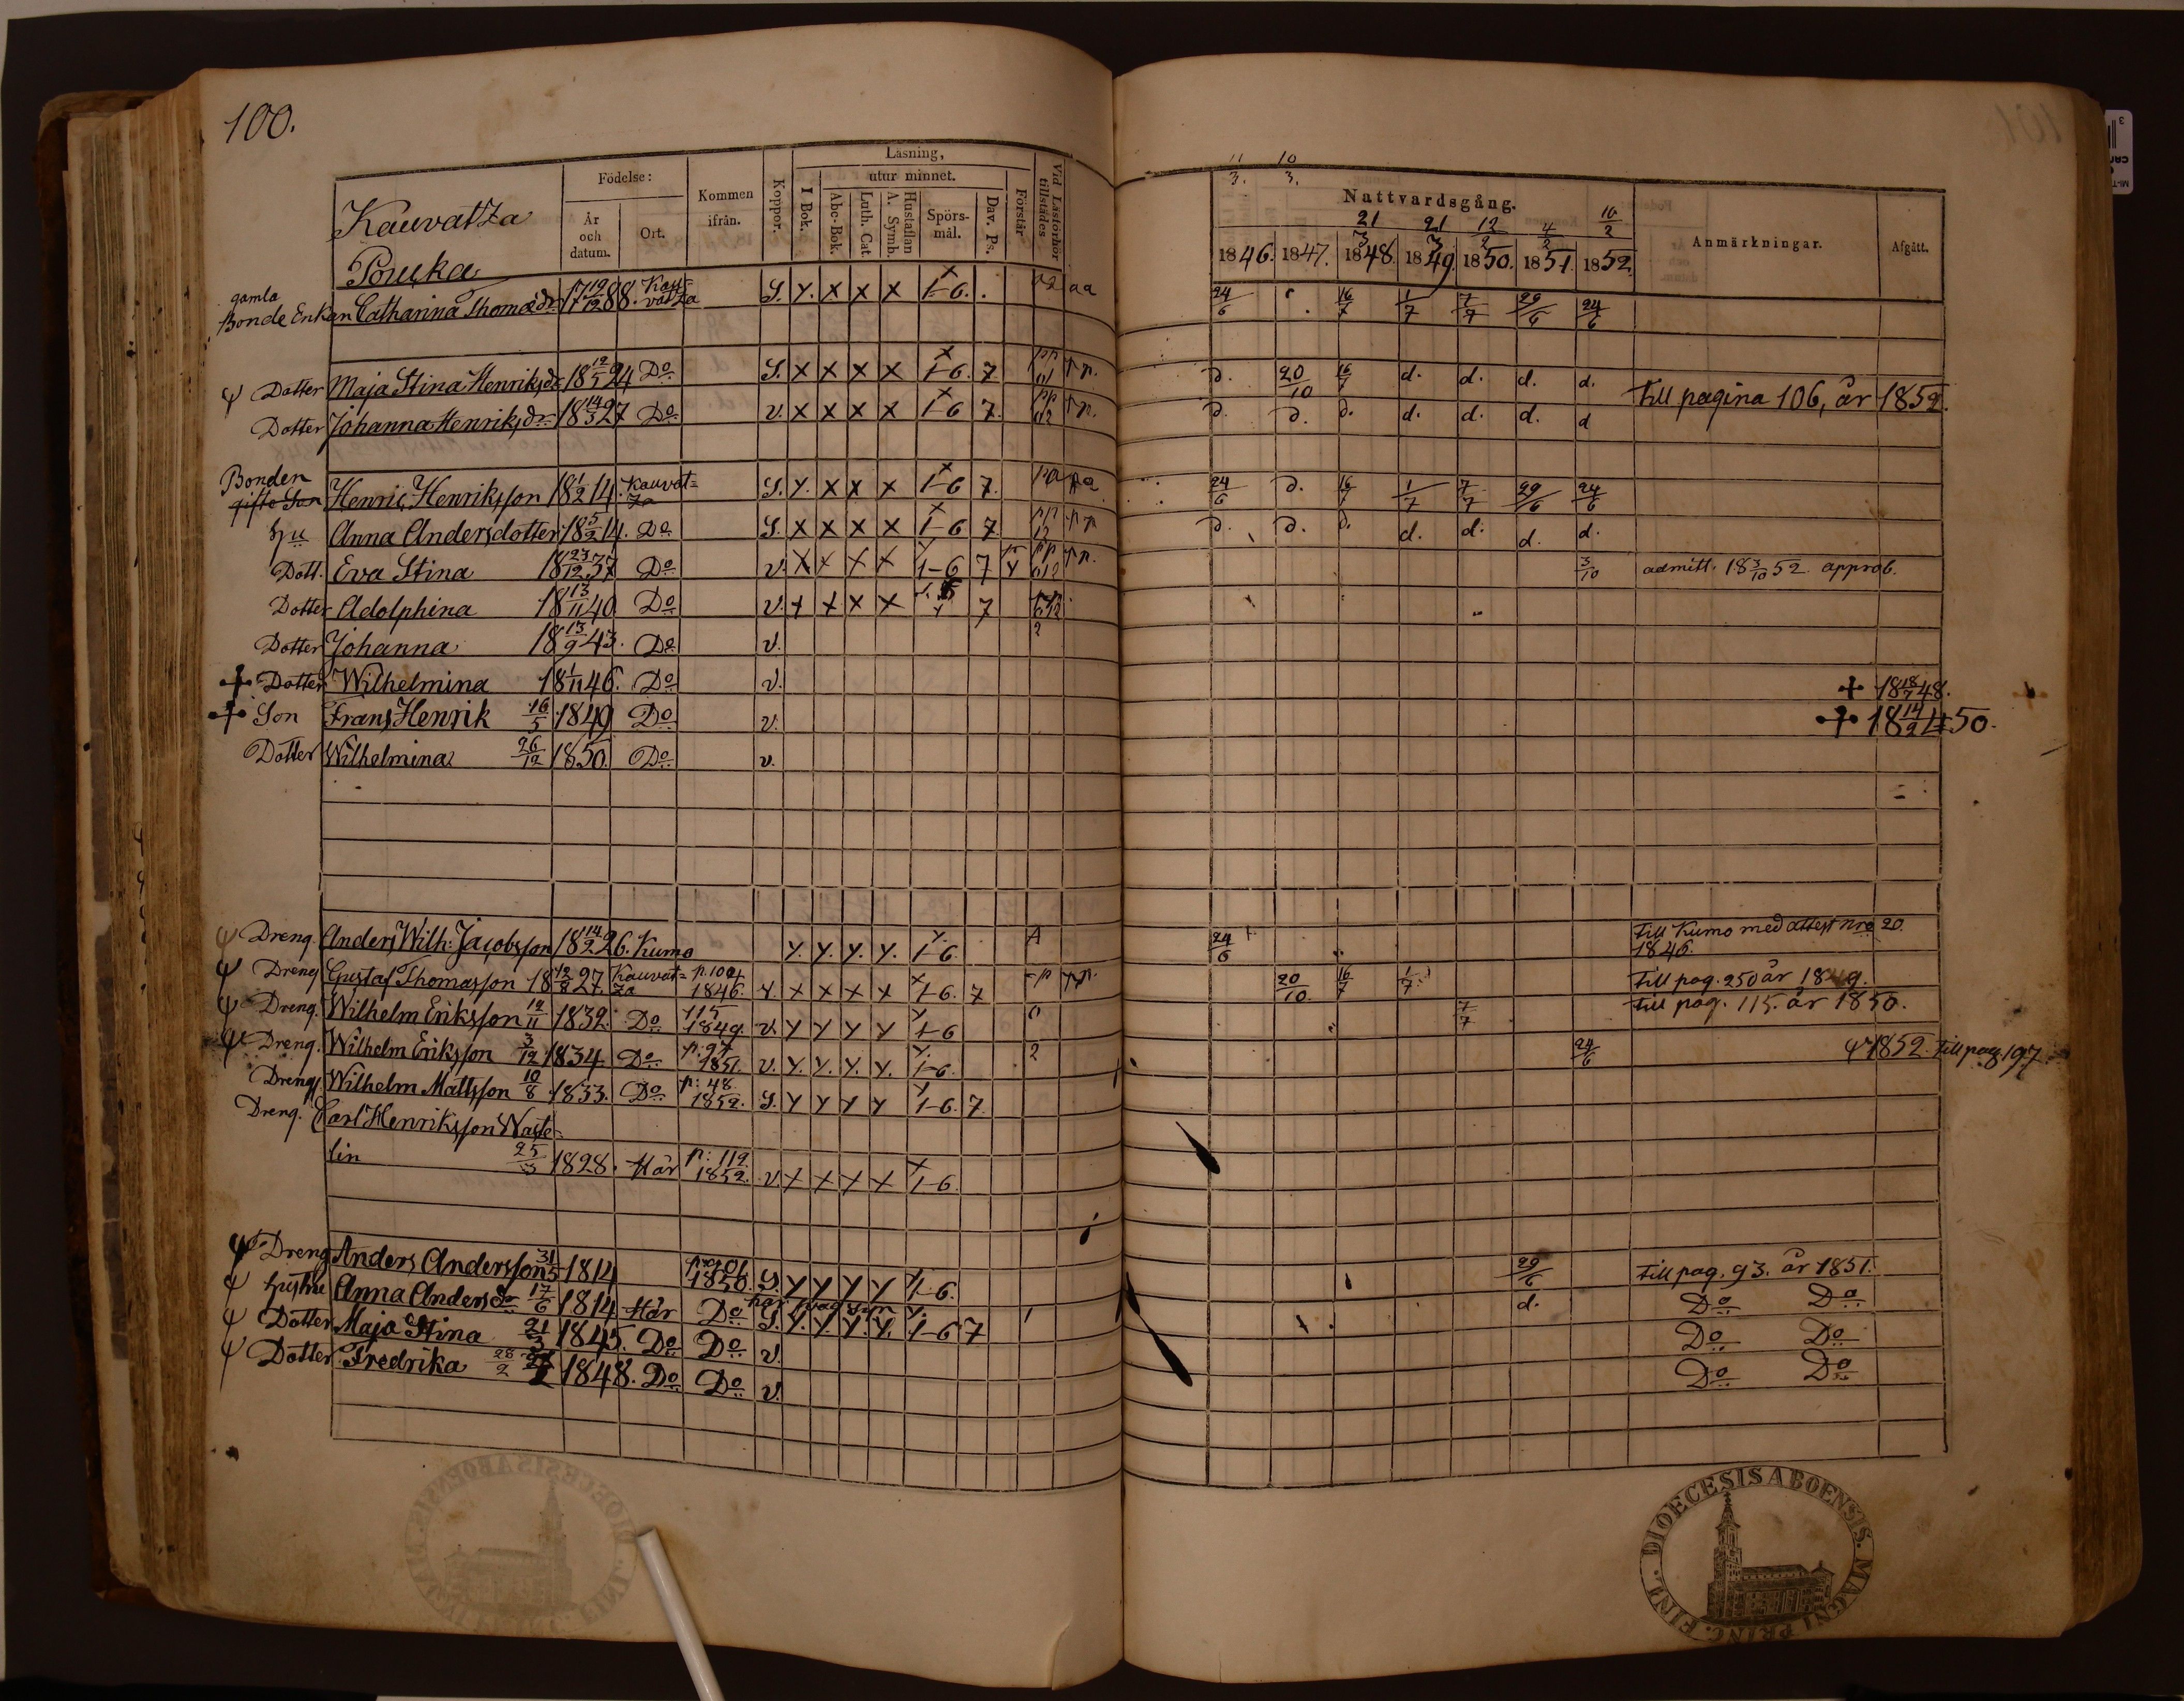 100.
Kauvatza
Pouka
Födelse:
År och datum.
Ort.
Kommen ifrån.
Koppor.
Läsning,
I Bok.
utur minnet.
Abc-Bok.
Luth. Cat.
Hustaflan A. Symb.
Spörs-mål.
Dav. Ps.
Förstår
Vid Läsförhör tillstädes
Nattvardsgång.
11/3. 10/3. 21/3 21/3 12/2 4/2 16/2
1846. 1847. 1848. 1849. 1850. 1851. 1852.
Anmärkningar.
Afgått.
gamla
Bonde Enkan Catharina Thomædr 17 19/12 88. Kauvatza S. Y. X X X 1-6. 24/6 16/7 1/7 7/7 29/6 24/6
Dotter Maja Stina Henriksdr 18 12/5 24 Do S. X X X X 1-6. 7 d. 20/10 16/7 d. d. d. d. Till pagina 106, år 1852.
Dotter Johanna Henriksdr 18 14/3 27 Do v. X X X X 1-6 7. d. d. d. d. d. d. d
Bonden
gifte Son Henric Henriksson 18 1/2 14. Kauvatza S. Y. X X X 1-6 7. 24/6 d. 16/7 1/7 7/7 29/6 24/6
Hu Anna Andersdotter 18 5/2 14. Do S. X X X X 1-6 7 d. d. d. d. d. d. d.
Dott. Eva Stina 18 23/12 37 Do v. X X X X 1-6 7 3/10 admitt. 18 3/10 52 approb.
Dotter Adolphina 18 13/11 40 Do v. X X X X 7
Dotter Johanna 18 13/9 43. Do v.
Dotter Wilhelmina 18 1/11 46. Do v. 18 18/7 48.
Son Frans Henrik 16/5 1849 Do v. 18 14/2 50.
Dotter Wilhelmina 26/12 1850. Do v.
Dreng. Anders Wilh: Jacobsson 18 14/2 26. Kumo Y. Y. Y. Y. 1-6. 24/6 Till Kumo med attest nro 20. 1846.
Dreng Gustaf Thomasson 18 12/8 27. Kauvatza p. 104 1846. X X X X 1-6. 7 20/10 16/7 1/7 Till pag. 250 år 1849.
Dreng. Wilhelm Eriksson 12/11 1832. Do 115 1849. v. Y Y Y Y 1-6 7/7 Till pag. 115. år 1850.
Dreng. Wilhelm Eriksson 3/12 1834 Do p: 97 1851. v. Y. Y. Y. Y. 1-6. 24/6 1852. Till pag. 197
Dreng Wilhelm Mattsson 10/8 1833. Do p: 48. 1852. S. Y Y Y Y 1-6. 7.
Dreng. Carl Henriksson Waste-
lin 25/3 1828. Här p: 119. 1852. v X X X X 1-6.
Dreng Anders Andersson 31/5 1814 1850. S. Y Y Y Y 1-6. 29/6 Till pag. 93. år 1851.
hustru Anna Andersdr 17/6 1814 Här Do S. Y. Y. Y. Y. 1-6 7 d. Do Do
Dotter Maja Stina 21/3 1845. Do Do v. Do Do
Dotter Fredrika 28/2 1848. Do Do v. Do Do
DIOECESIS ABOENSIS. MAGNI PRINC. FINL.